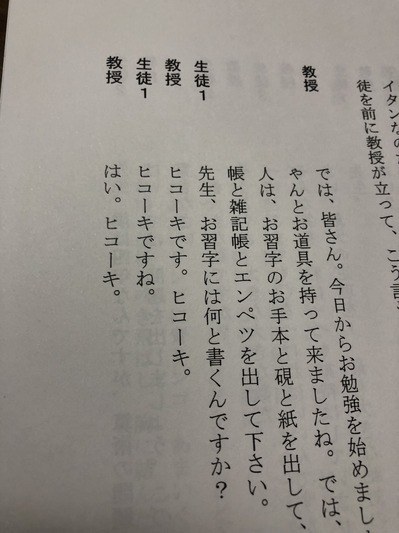 イタンなの
徒を前に教授が立って、こう言
教授　では、皆さん。今日からお勉強を始めまし
ゃんとお道具を持って来ましたね。では、
人は、お習字のお手本と硯と紙を出して、
帳と雑記帳とエンペツを出して下さい。
生徒１　先生、お習字には何と書くんですか？
教授　ヒコーキです。ヒコーキ。
生徒１　ヒコーキですね。
教授　はい。ヒコーキ。